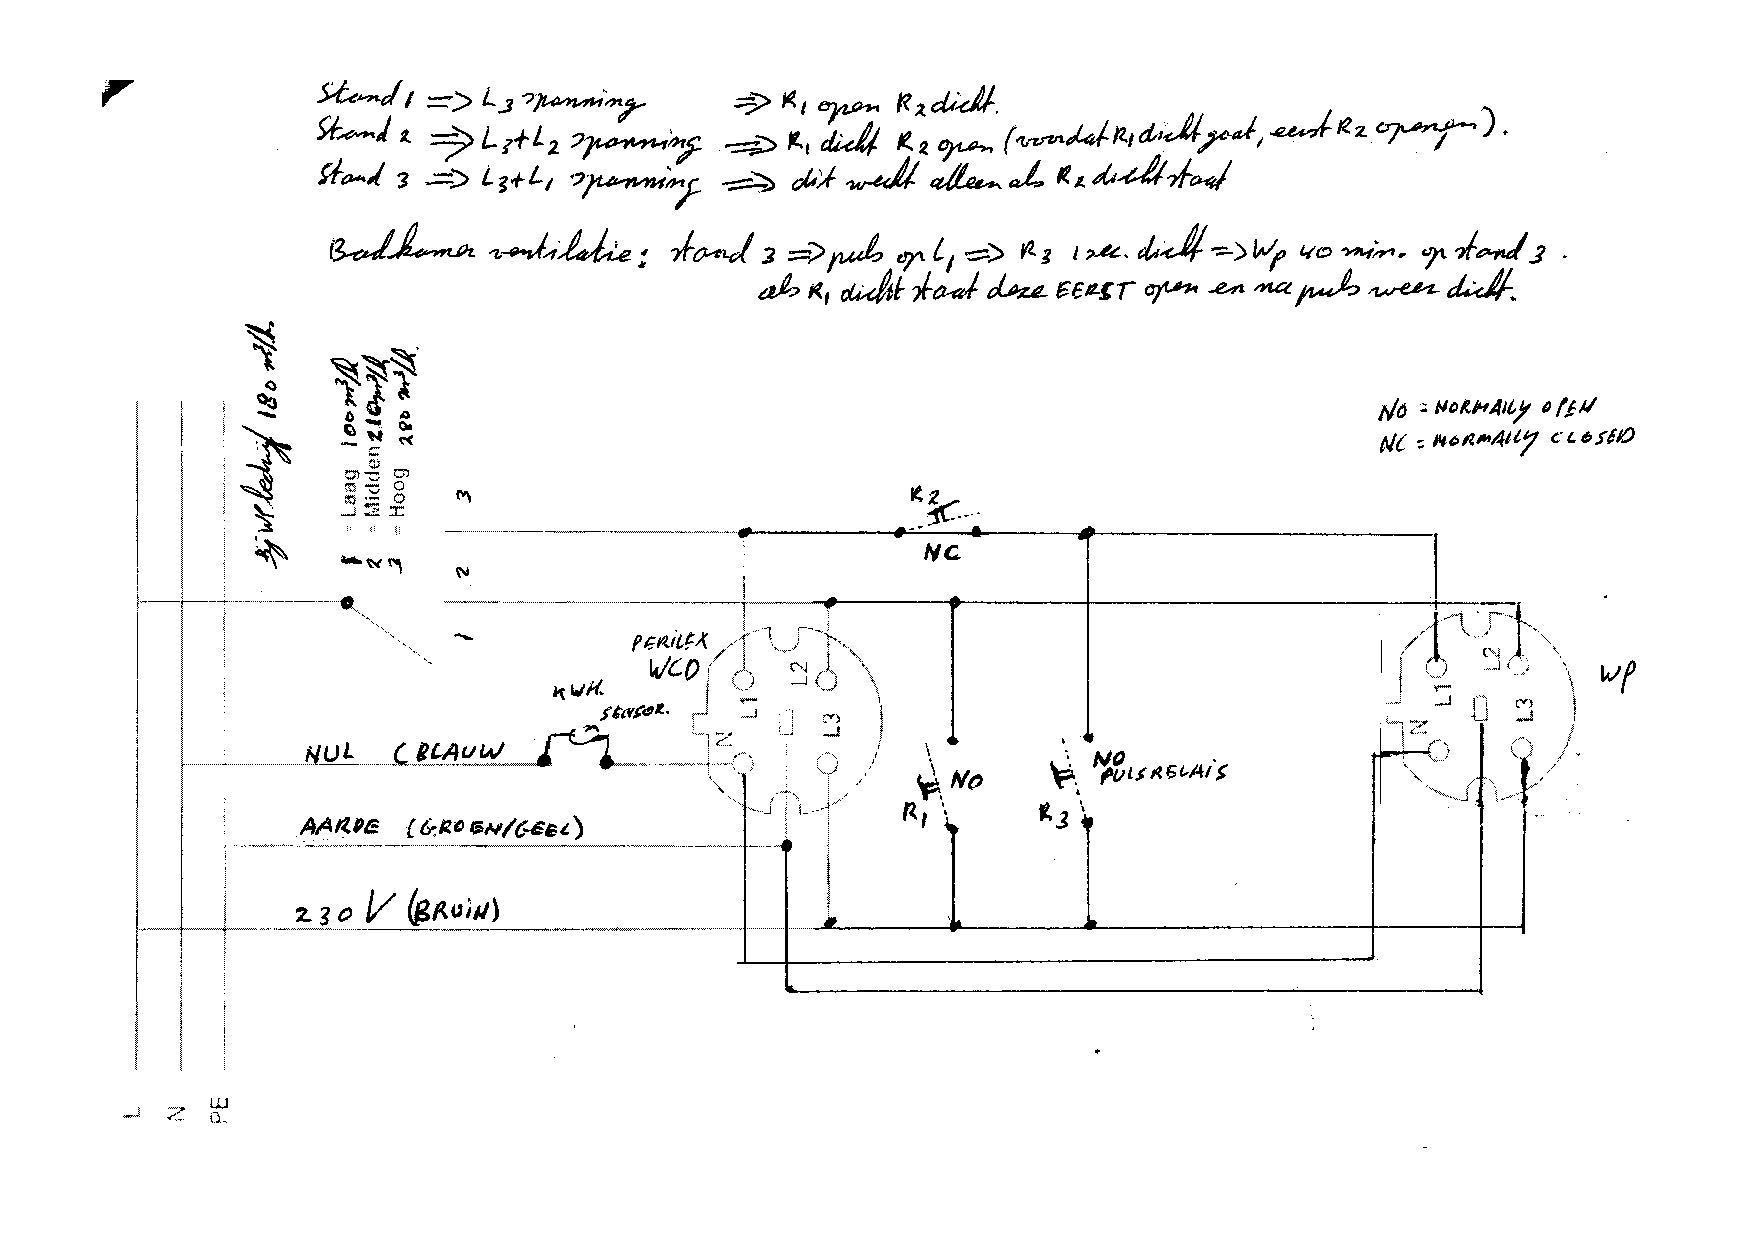 Stand 1 => L3 spanning => R1 open R2 dicht.
Stand 2 => L3+L2 spanning => R1 dicht R2 open (voordat R1 dicht gaat, eerst R2 openen).
Stand 3 => L3+L1 spanning => dit werkt alleen als R2 dicht staat
Badkamer ventilatie: stand 3 => puls op L1 => R3 1 sec. dicht => Wp 40 min. op stand 3.
als R1 dicht staat deze EERST open en na puls weer dicht.
Bij WP bedrijf 180 m³/h.
1 = Laag 100 m³/h
2 = Midden 210 m³/h
3 = Hoog 280 m³/h.
NO = NORMALLY OPEN
NC = NORMALLY CLOSED
3
R2
NC
2
1
PERILEX
WCD
L1
L2
L3
N
WP
L1
L2
L3
N
KWH.
SENSOR.
NUL (BLAUW
NO
R1
NO
PULSRELAIS
R3
AARDE (GROEN/GEEL)
230 V (BRUIN)
L
N
PE